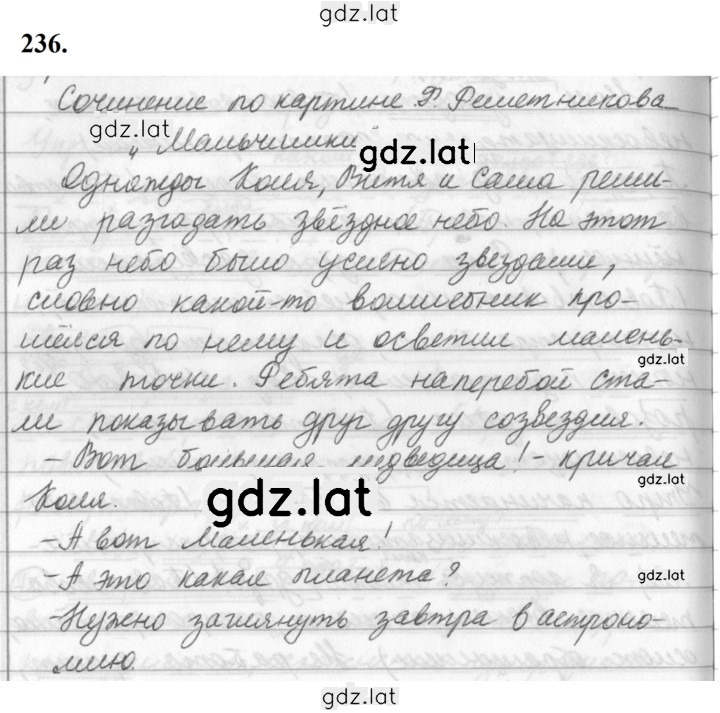 gdz.lat
236.
Сочинение по картине Ф. Решетникова
gdz.lat
„Мальчишки
gdz.lat
Однажды Коля, Витя и Саша реши-
ли разгадать звёздное небо. На этот
раз небо было усеяно звездами,
словно какой-то волшебник про-
шёлся по нему и осветил малень-
gdz.lat
кие точки. Ребята наперебой ста-
ли показывать друг другу созвездия.
- Вот большая медведица! - кричал
Коля.
gdz.lat
- А вот маленькая!
- А это какая планета?
gdz.lat
- Нужно заглянуть завтра в астроно-
мию.
gdz.lat